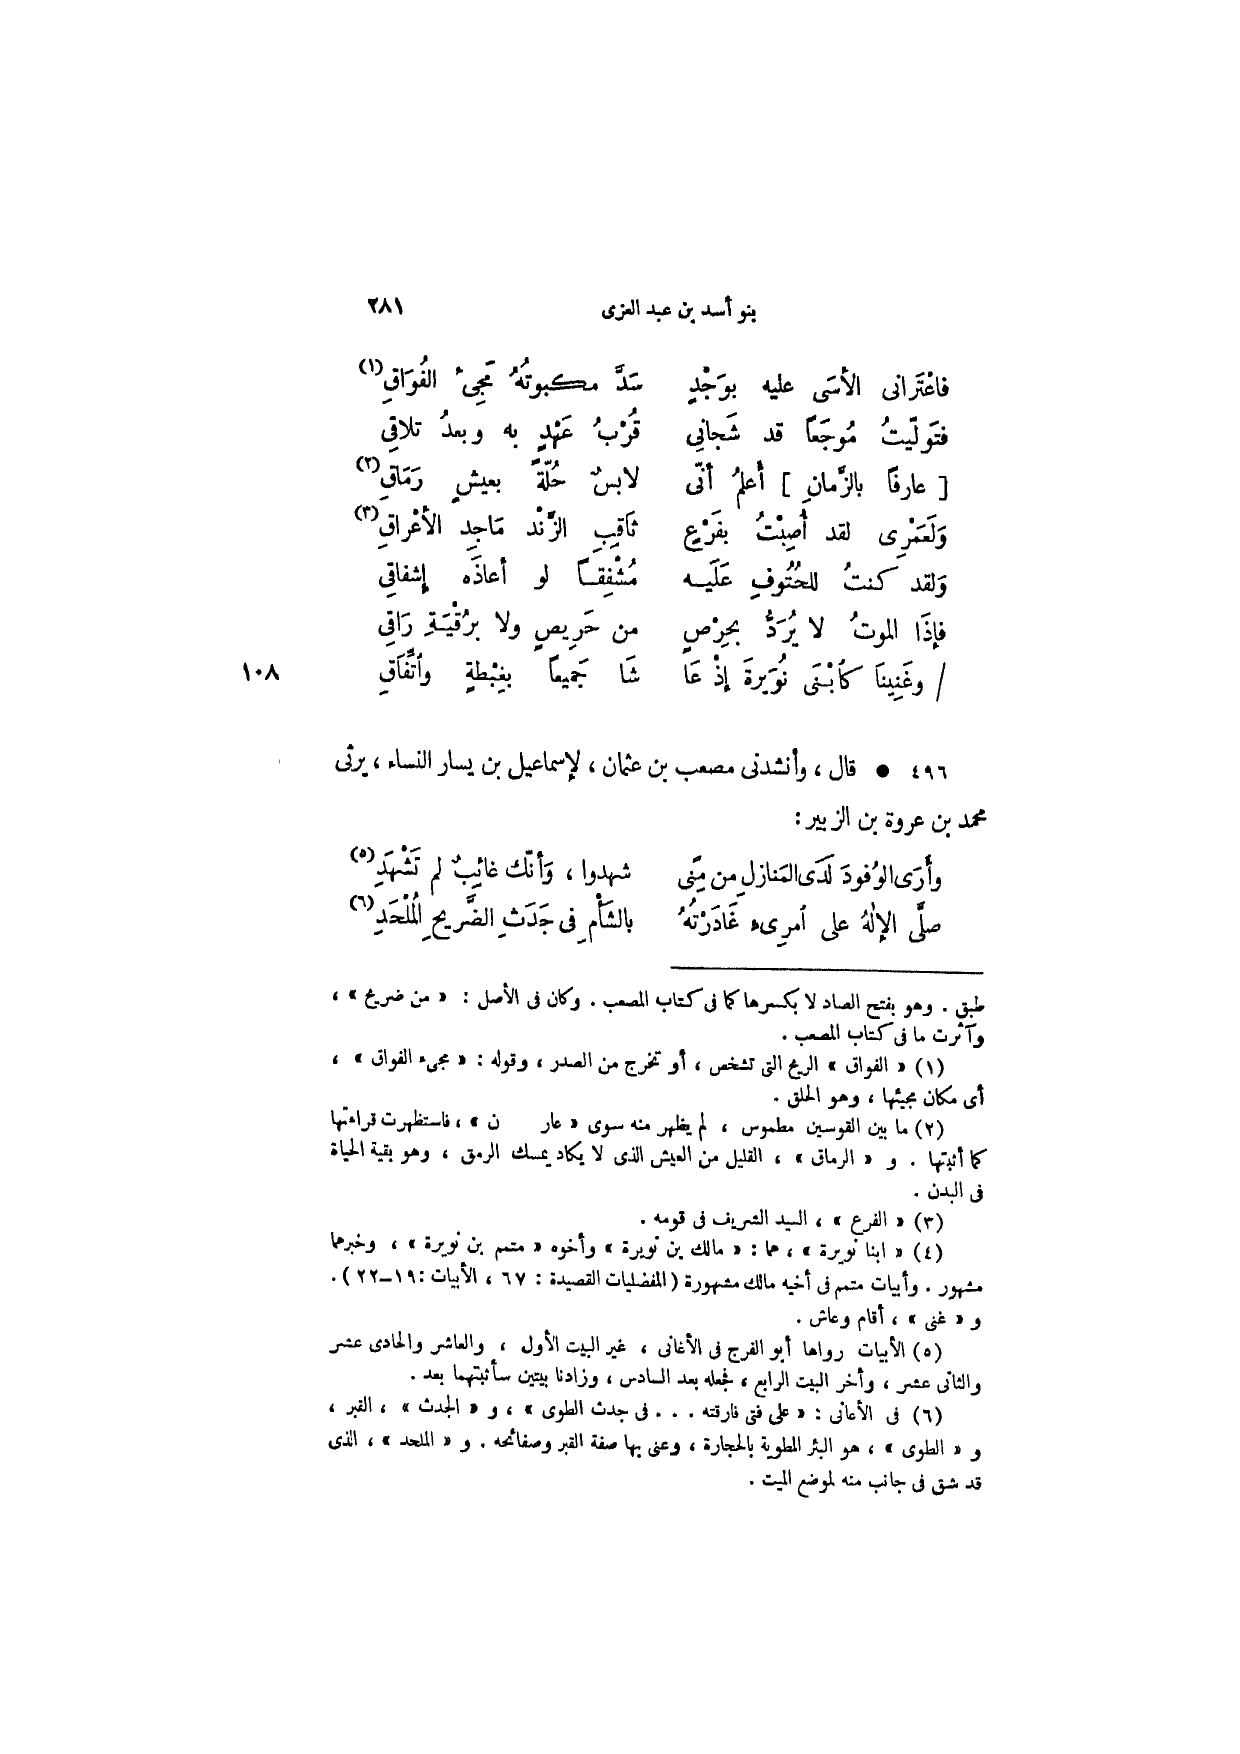 بنو أسد بن عبد العزى ٢٨١
فاعْتَرانى الأسَى عليه بوَجْدٍ سَدَّ مكبوتُهُ مَجِىءَ الفُوَاقِ (١)
فتَولّيتُ مُوجَعًا قد شَجانِى قُرْبُ عَهْدٍ به وبعدُ تلاقِى
[ عارفًا بالزَّمانِ ] أعلمُ أنّى لابسٌ حُلّةً بعيشٍ رَمَاقِ (٢)
ولَعَمْرِى لقد أُصِبْتُ بفَرْعٍ ثاقِبِ الزَّنْد مَاجِدِ الأعْراقِ (٣)
ولقد كنتُ للحُتُوفِ عَلَيه مُشْفِقًا لو أعاذَه إشفاقِى
فإذَا الموتُ لا يُرَدُّ بحِرْصٍ من حَرِيصٍ ولا برُقْيَةِ رَاقِى
/ وغَنِينَا كأبْنَى نُوَيرةَ إذْ عَا شَا جَميعًا بغِبْطةٍ وأتِّفَاقِ ١٠٨
٤٩٦ • قال ، وأنشدنى مصعب بن عثمان ، لإسماعيل بن يسار النساء ، يرثى
محمد بن عروة بن الزبير :
وأَرَى الوُفودَ لَدَى المَنازلِ من مِنًى شهدوا ، وَأنّك غائِبٌ لم تَشْهَدِ (٥)
صلَّى الإلٰهُ على أمرِىء غَادَرْتُهُ بالشَّأْمِ فى جَدَثِ الضَّريحِ المُلْحَدِ (٦)
طبق . وهو بفتح الصاد لا بكسرها كما فى كتاب المصعب . وكان فى الأصل : « من ضريح » ،
وآثرت ما فى كتاب المصعب .
(١) « الفواق » الريح التى تشخص ، أو تخرج من الصدر ، وقوله : « مجىء الفواق » ،
أى مكان مجيئها ، وهو الحلق .
(٢) ما بين القوسين مطموس ، لم يظهر منه سوى « عار ن » ، فاستظهرت قراءتها
كما أثبتها . و « الرماق » ، القليل من العيش الذى لا يكاد يمسك الرمق ، وهو بقية الحياة
فى البدن .
(٣) « الفرع » ، السيد الشريف فى قومه .
(٤) « ابنا نويرة » ، هما : « مالك بن نويرة » وأخوه « متمم بن نويرة » ، وخبرهما
مشهور . وأبيات متمم فى أخيه مالك مشهورة ( المفضليات القصيدة : ٦٧ ، الأبيات : ١٩–٢٢ ) .
و « غنى » ، أقام وعاش .
(٥) الأبيات رواها أبو الفرج فى الأغانى ، غير البيت الأول ، والعاشر والحادى عشر
والثانى عشر ، وأخر البيت الرابع ، فجعله بعد السادس ، وزادنا بيتين سأثبتهما بعد .
(٦) فى الأغانى : « على فتى فارقته . . . فى جدث الطوى » ، و « الجدث » ، القبر ،
و « الطوى » ، هو البئر المطوية بالحجارة ، وعنى بها صفة القبر وصفائحه . و « الملحد » ، الذى
قد شق فى جانب منه لموضع الميت .